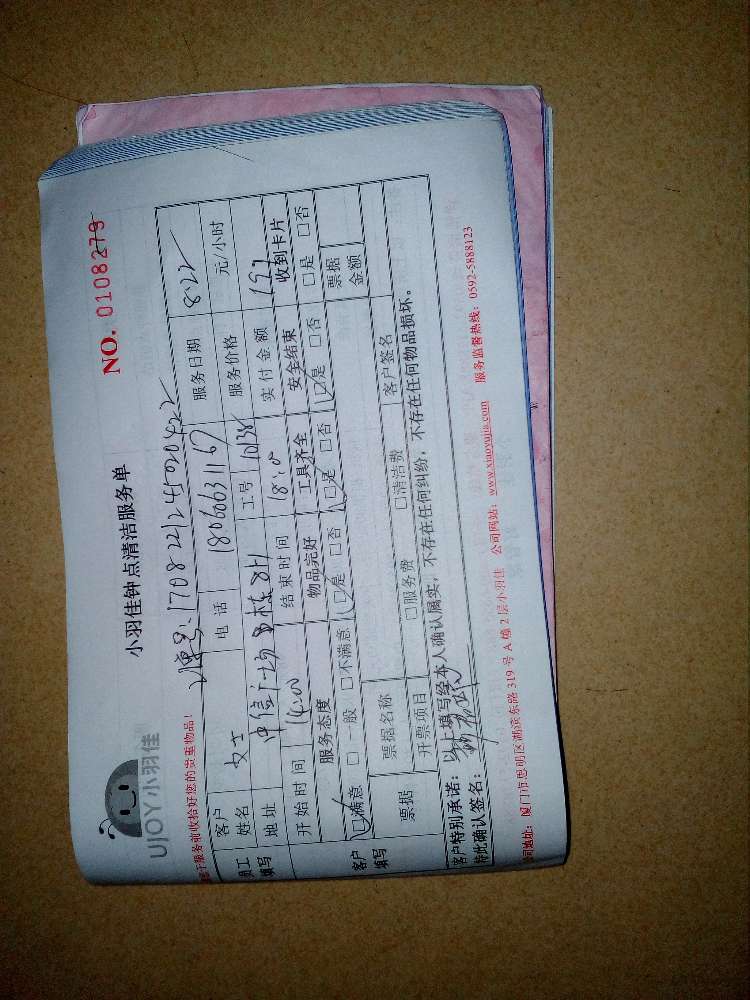 UJOY小羽佳
小羽佳钟点清洁服务单
NO. 0108279
于服务前收拾好您的贵重物品！
单号：1708221245020422
员工填写
客户姓名 女士 电话 18066631167 服务日期 8.22
地址 中信广场 工号 服务价格 元/小时
开始时间 14:00 结束时间 18:00 实付金额
客户填写
服务态度 物品完好 工具齐全 安全结束 收到卡片
☑满意 □一般 □不满意 ☑是 □否 ☑是 □否 ☑是 □否 □是 □否
票据 票据名称 票据金额
开票项目 □服务费 □清洁费 客户签名
客户特别承诺：以上填写经本人确认属实，不存在任何纠纷，不存在任何物品损坏。
特此确认签名：
公司地址：厦门市思明区湖滨东路319号A幢2层小羽佳 公司网站：www.xiaoyujia.com 服务监督热线：0592-5888123